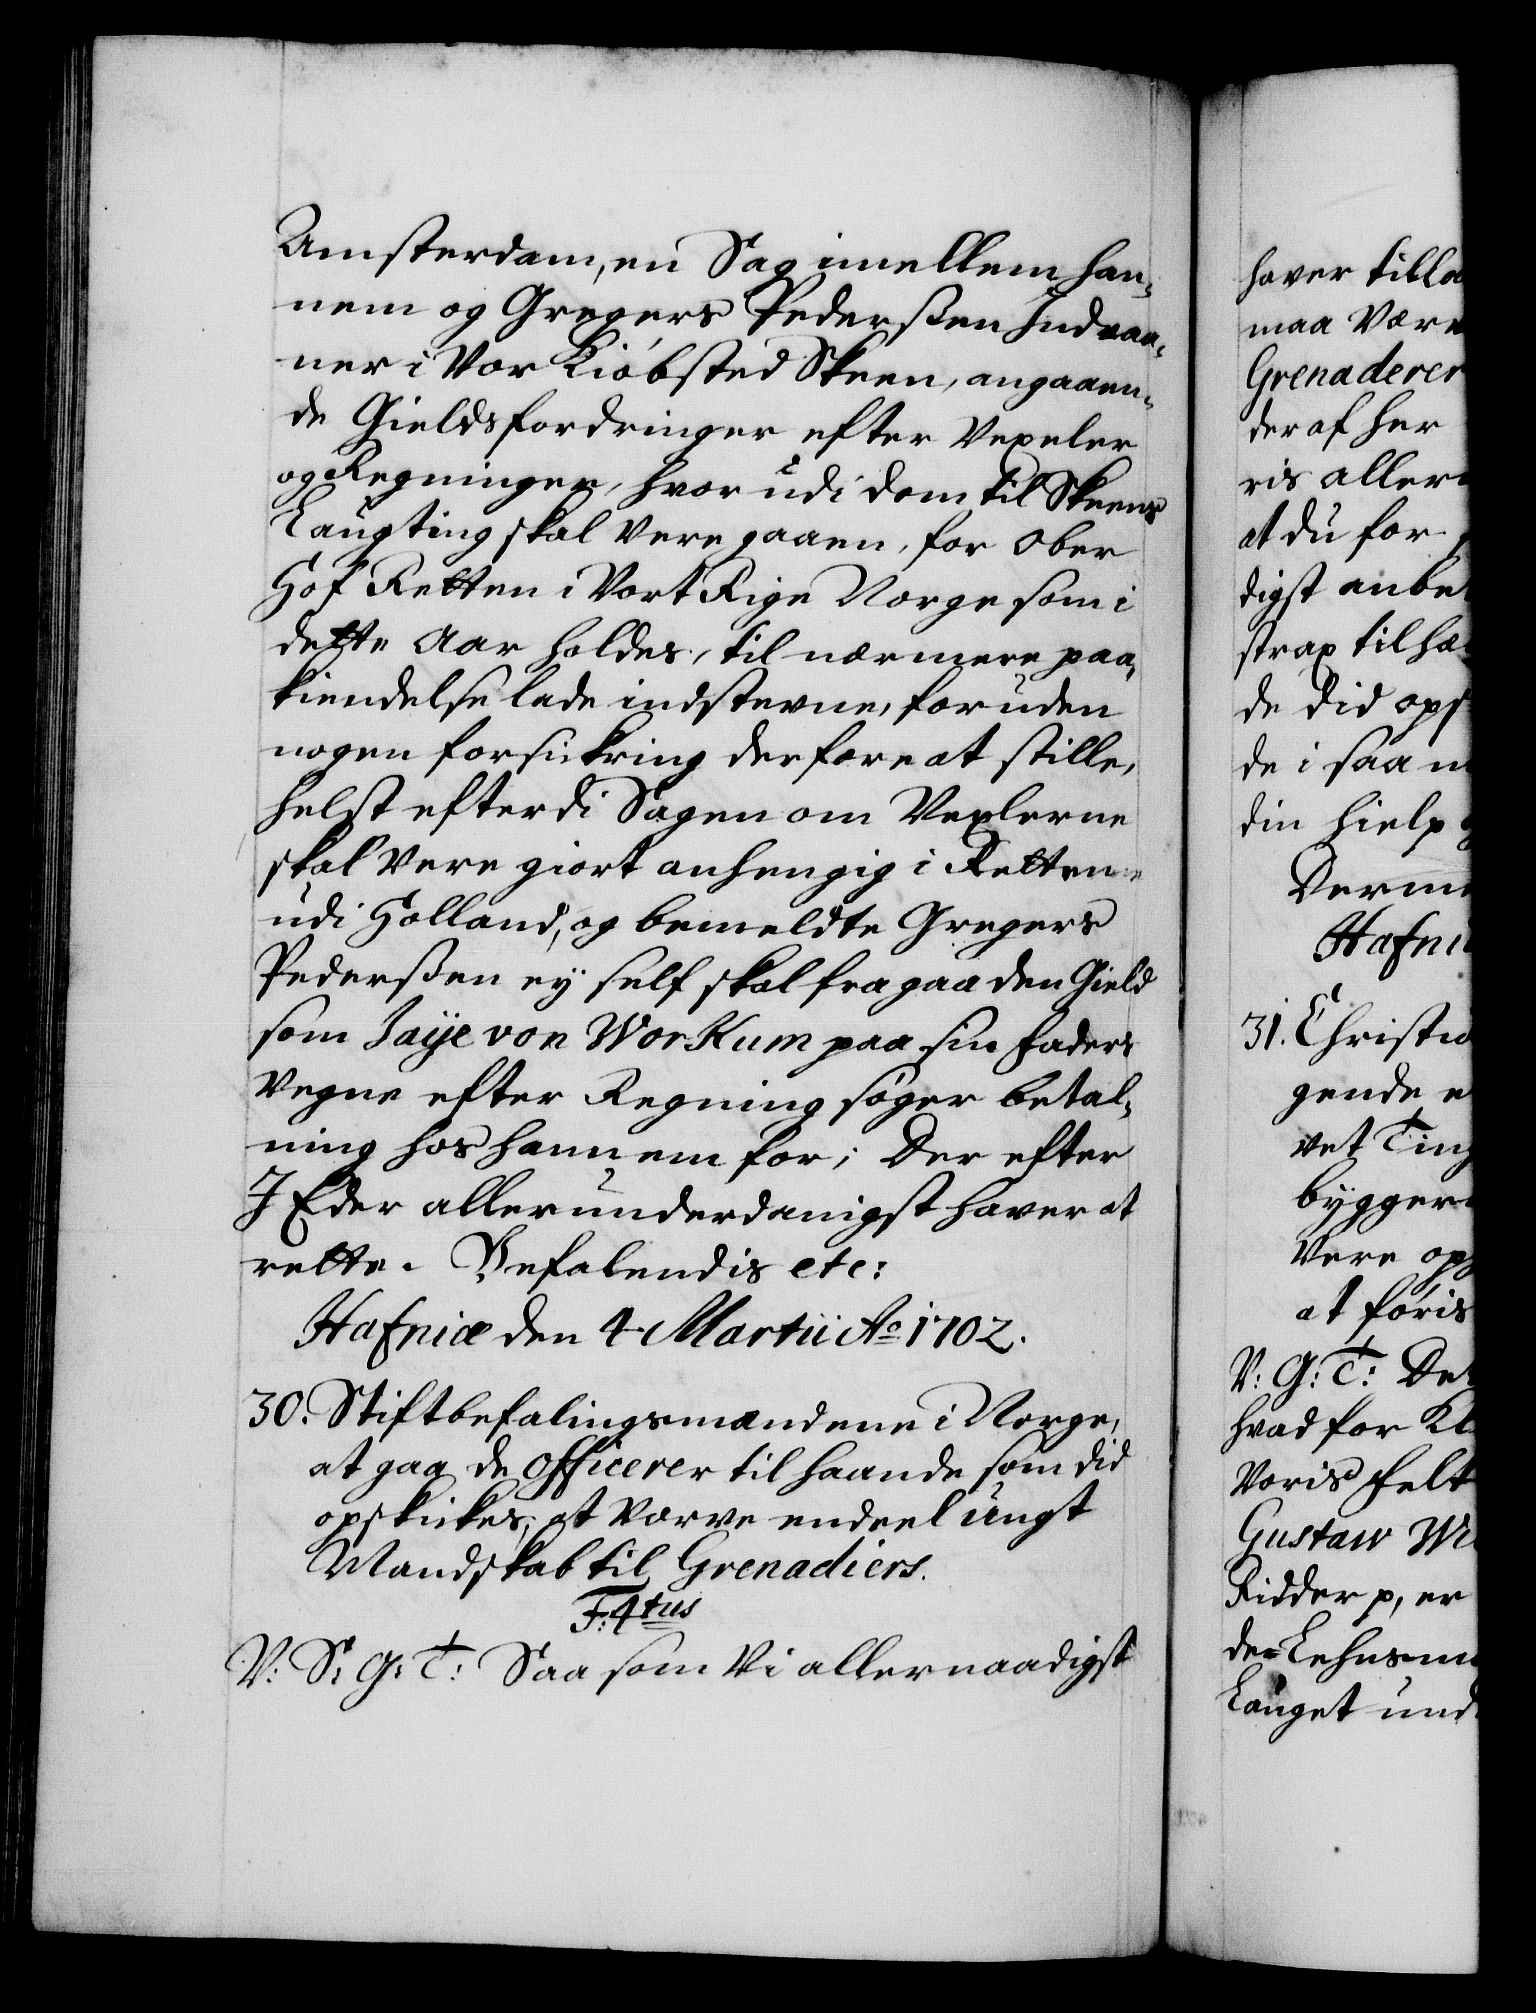 Amsterdam, en Sag imellem han-
nem og Gregers Pederßen Indvaa-
ner i Vor Kiöbsted Skeen, angaaen-
de Gieldsfordringer efter Vexeler
og Regninger, hvor udi dom til Skeens
Laugting skal Vere gaaen, for Ober
Hof Retten i Vort Rige Norge som i
dette Aar holdes, til nærmere paa-
kiendelse lade indstevne, foruden
nogen forsikring derfore at stille,
helst efterdi Sagen om Vexlerne
skal Vere giort anhengig i Retten
udi Holland, og bemeldte Gregers
Pederßen ey self skal fragaa den Gield
som Jaye von Workum paa sin Faders
Vegne efter Regning söger betal-
ning hos hannem for; Der efter
I Eder allerunderdanigst haver at
rette. Befalendis etc:
Hafniæ den 4 Martii Ao 1702.
30. Stiftbefalingsmændene i Norge,
at gaa de Officerer til haande som did
opskickes, at Værve endeel ungt
Mandskab til Grenadiers.
F: 4tus
V: S: G: T: Saa som Vi allernaadigst
haver tilla
maa Være
Grenaderer
der af her
ris aller
at du for
digst anbe
strax tilhæ
de did ops
de i saa m
din hielp
Derm
Hafni
31. Christia
gende e
vet Ting
bygger
Vere op
at föris
V: G: T: De
hvad for Kl
Voris felt
Gustaw Wi
Ridder p, er
de Lehnsm
Lauget und